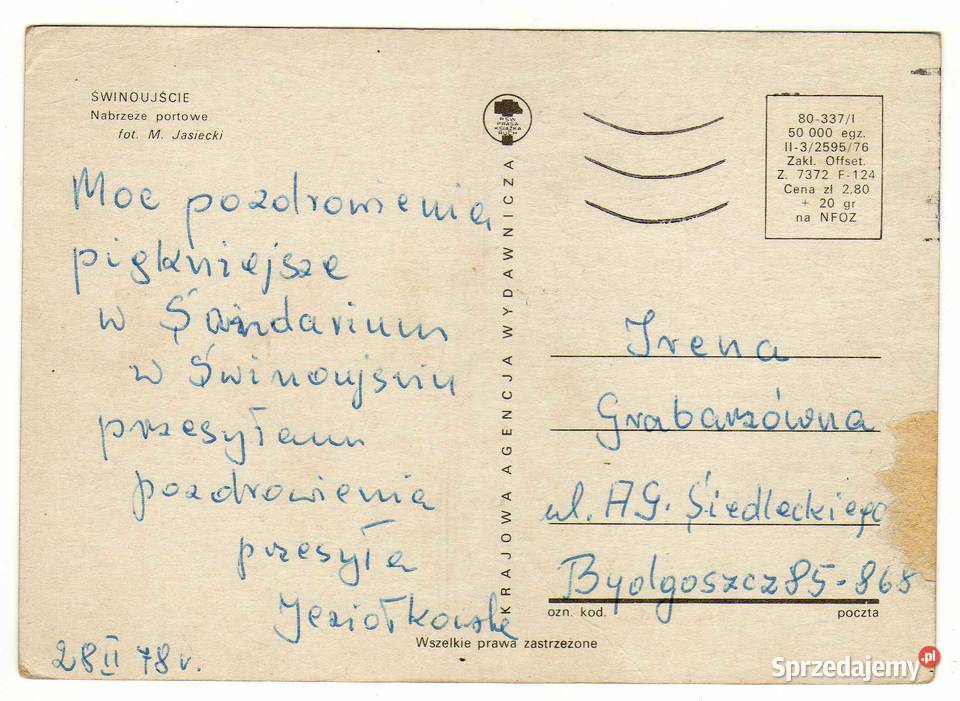 ŚWINOUJŚCIE
Nabrzeże portowe
fot. M. Jasiecki
Moc pozdrowienia
piękniejsze
w
w Świnoujściu
przesyłam
pozdrowienia
przesyła
Jeziółkowska
28 II 78 r.
PSW
PRASA
KSIĄŻKA
RUCH
KRAJOWA AGENCJA WYDAWNICZA
80-337/I
50 000 egz.
II-3/2595/76
Zakł. Offset.
Z. 7372 F-124
Cena zł 2,80
+ 20 gr
na NFOZ
Irena
Grabarzówna
ul. AG. Siedleckiego
Bydgoszcz 85-868
ozn. kod. poczta
Wszelkie prawa zastrzeżone
Sprzedajemy.pl